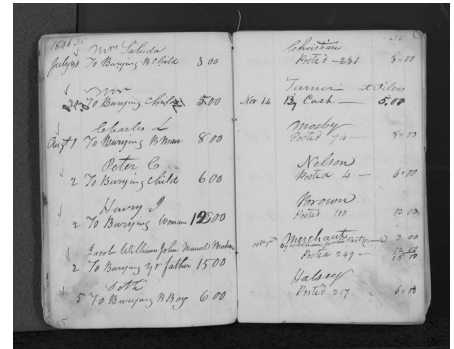 1886
Mrs Saluda
July 31 To Burying B Child 3 00
Mr
To Burying Child 5.00
Charles L
Augt 1 To Burying B Man 8 00
Peter C
2 To Burying Child 6 00
Harry J
2 To Burying Woman 12 00
Jacob William John Manuel
2 To Burying yr father 15 00
Soth
5 To Burying B Boy 6 00
Christian
Posted - 231 3.00
Turner
Nov 14 By Cash - 5.00
Mosby
Posted 74 - 8.00
Nelson
Posted 4 - 6.00
Brown
Posted 110 12.00
Merchant 3 00
Posted 249 - 12.00
15.00
Halsey
Posted 217 6.00